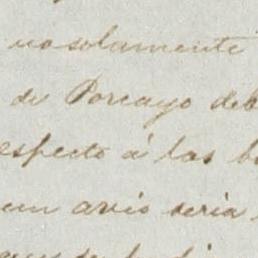 no solamente
de Porcayo deb
especto á las b
un avio seria